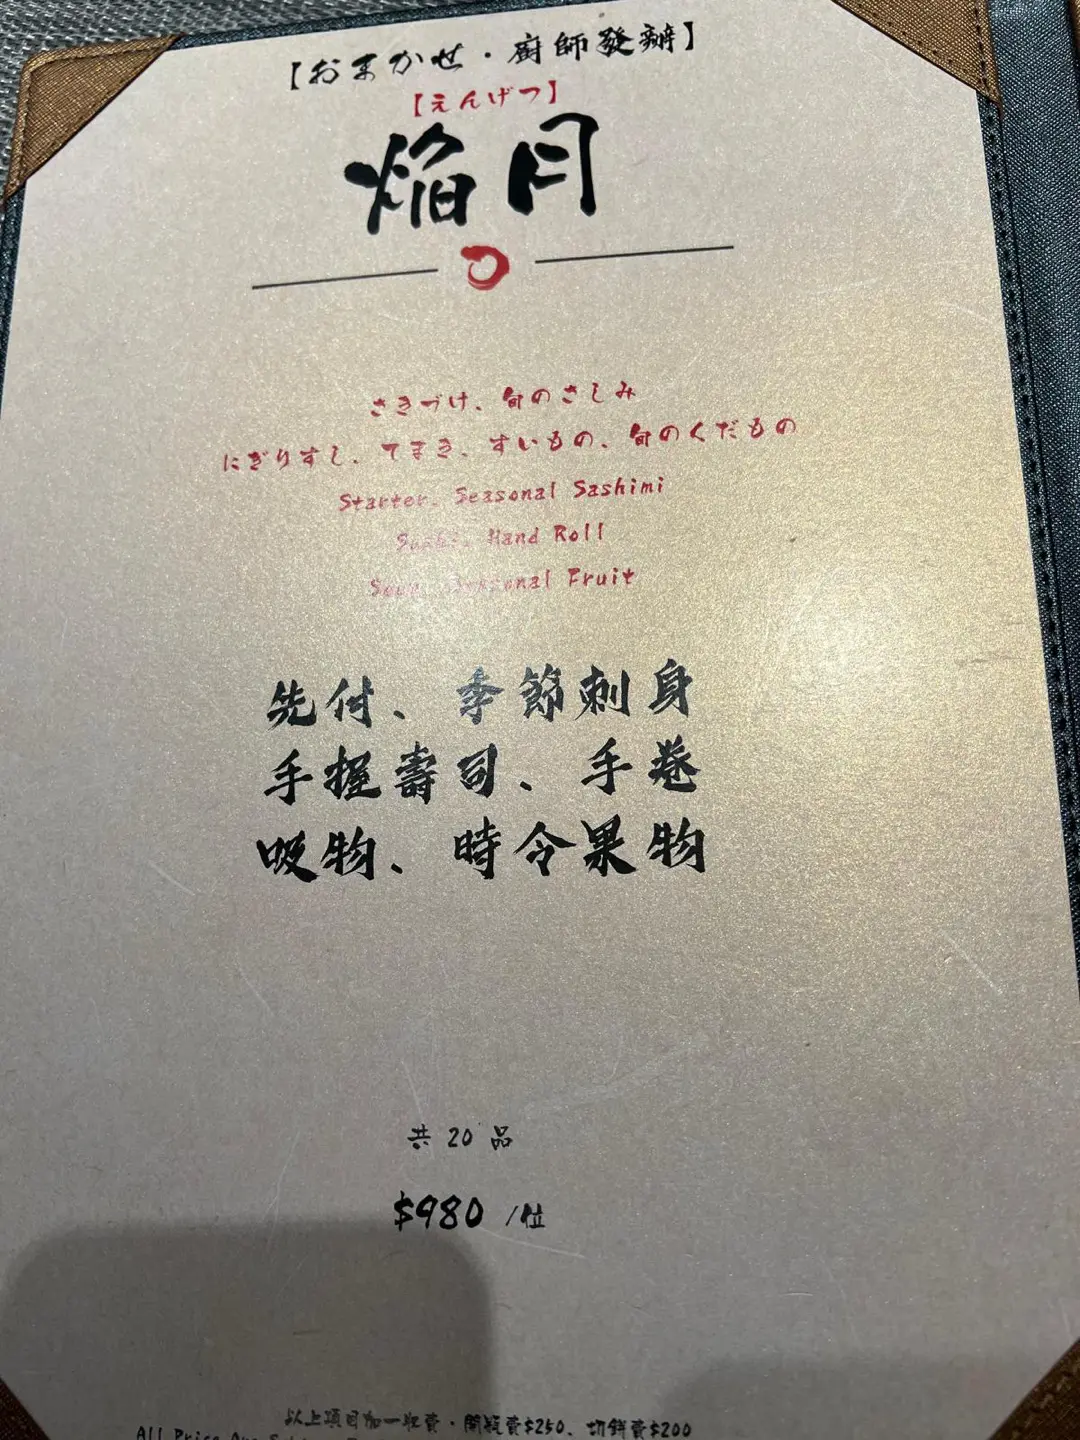 【おまかせ・廚師發辦】
【えんげつ】
焰月
さきづけ、旬のさしみ
にぎりすし、てまき、すいもの、旬のくだもの
Starter、Seasonal Sashimi
Sushi、Hand Roll
Soup、Seasonal Fruit
先付、季節刺身
手握壽司、手卷
吸物、時令果物
共 20 品
$980 /位
以上項目加一收費・開瓶費$250、切餅費$200
All Price Are